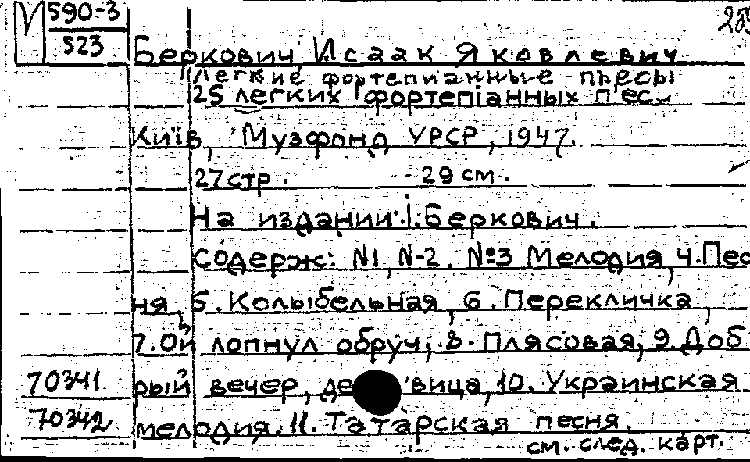 590-3
523
Беркович, Исаак Яковлевич
Легкие фортепианные пьесы
25 легких фортепіанных п'ес.
Київ, Музфонд УРСР, 1947.
27 стр. 29 см.
На издании: І. Беркович.
Содерж: N1, N-2, №3 Мелодия, 4. Пес
ня, 5. Колыбельная, 6. Перекличка,
7. Ой лопнул обруч, 8. Плясовая, 9. Доб
70341 рый вечер, де вица, 10. Украинская
70342 мелодия. 11. Татарская песня.
см. след. карт.